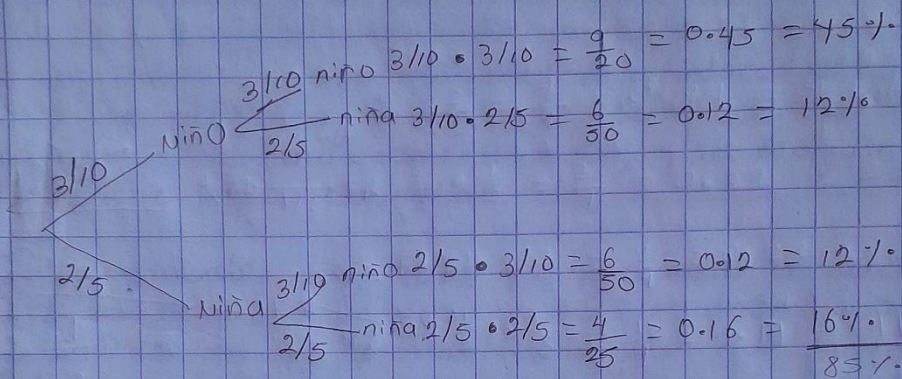 3/10 niño 3/10 • 3/10 = 9/20 = 0.45 = 45%
niño
2/5 niña 3/10 • 2/5 = 6/50 = 0.12 = 12%
3/10
2/5
niña
3/10 niño 2/5 • 3/10 = 6/50 = 0.12 = 12%
2/5 niña 2/5 • 2/5 = 4/25 = 0.16 = 16%
85%